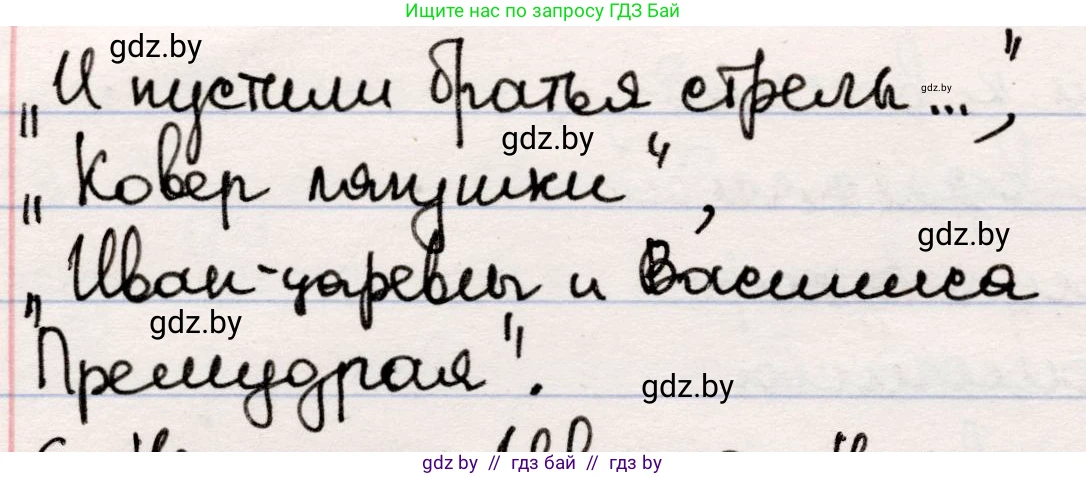 Ищите нас по запросу ГДЗ Бай
gdz.by
„И пустили братья стрелы...",
gdz.by
gdz.by
„Ковер ляпушки",
gdz.by
„Иван-царевны и Василиса
gdz.by
Премудрая".
gdz.by
gdz by // гдз бай // гдз by